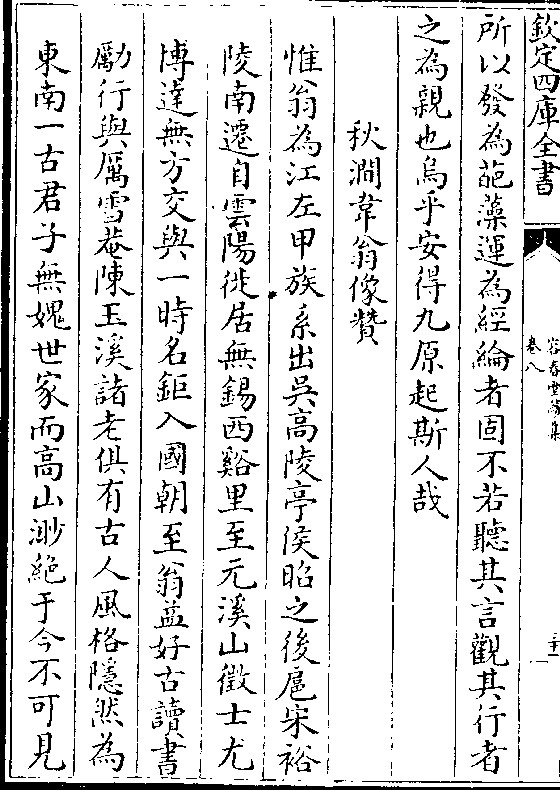 欽定四庫全書
卷八
所以發為葩藻運為經綸者固不若聽其言觀其行者
之為親也烏乎安得九原起斯人哉
秋澗韋翁像贊
惟翁為江左甲族系出吳高陵亭侯昭之後扈宋裕
陵南遷自雲陽徙居無錫西谿里至元溪山徵士尤
博達無方交與一時名鉅入國朝至翁益好古讀書
勵行與厲雪菴陳玉溪諸老俱有古人風格隱然為
東南一古君子無媿世家而高山渺絶于今不可見